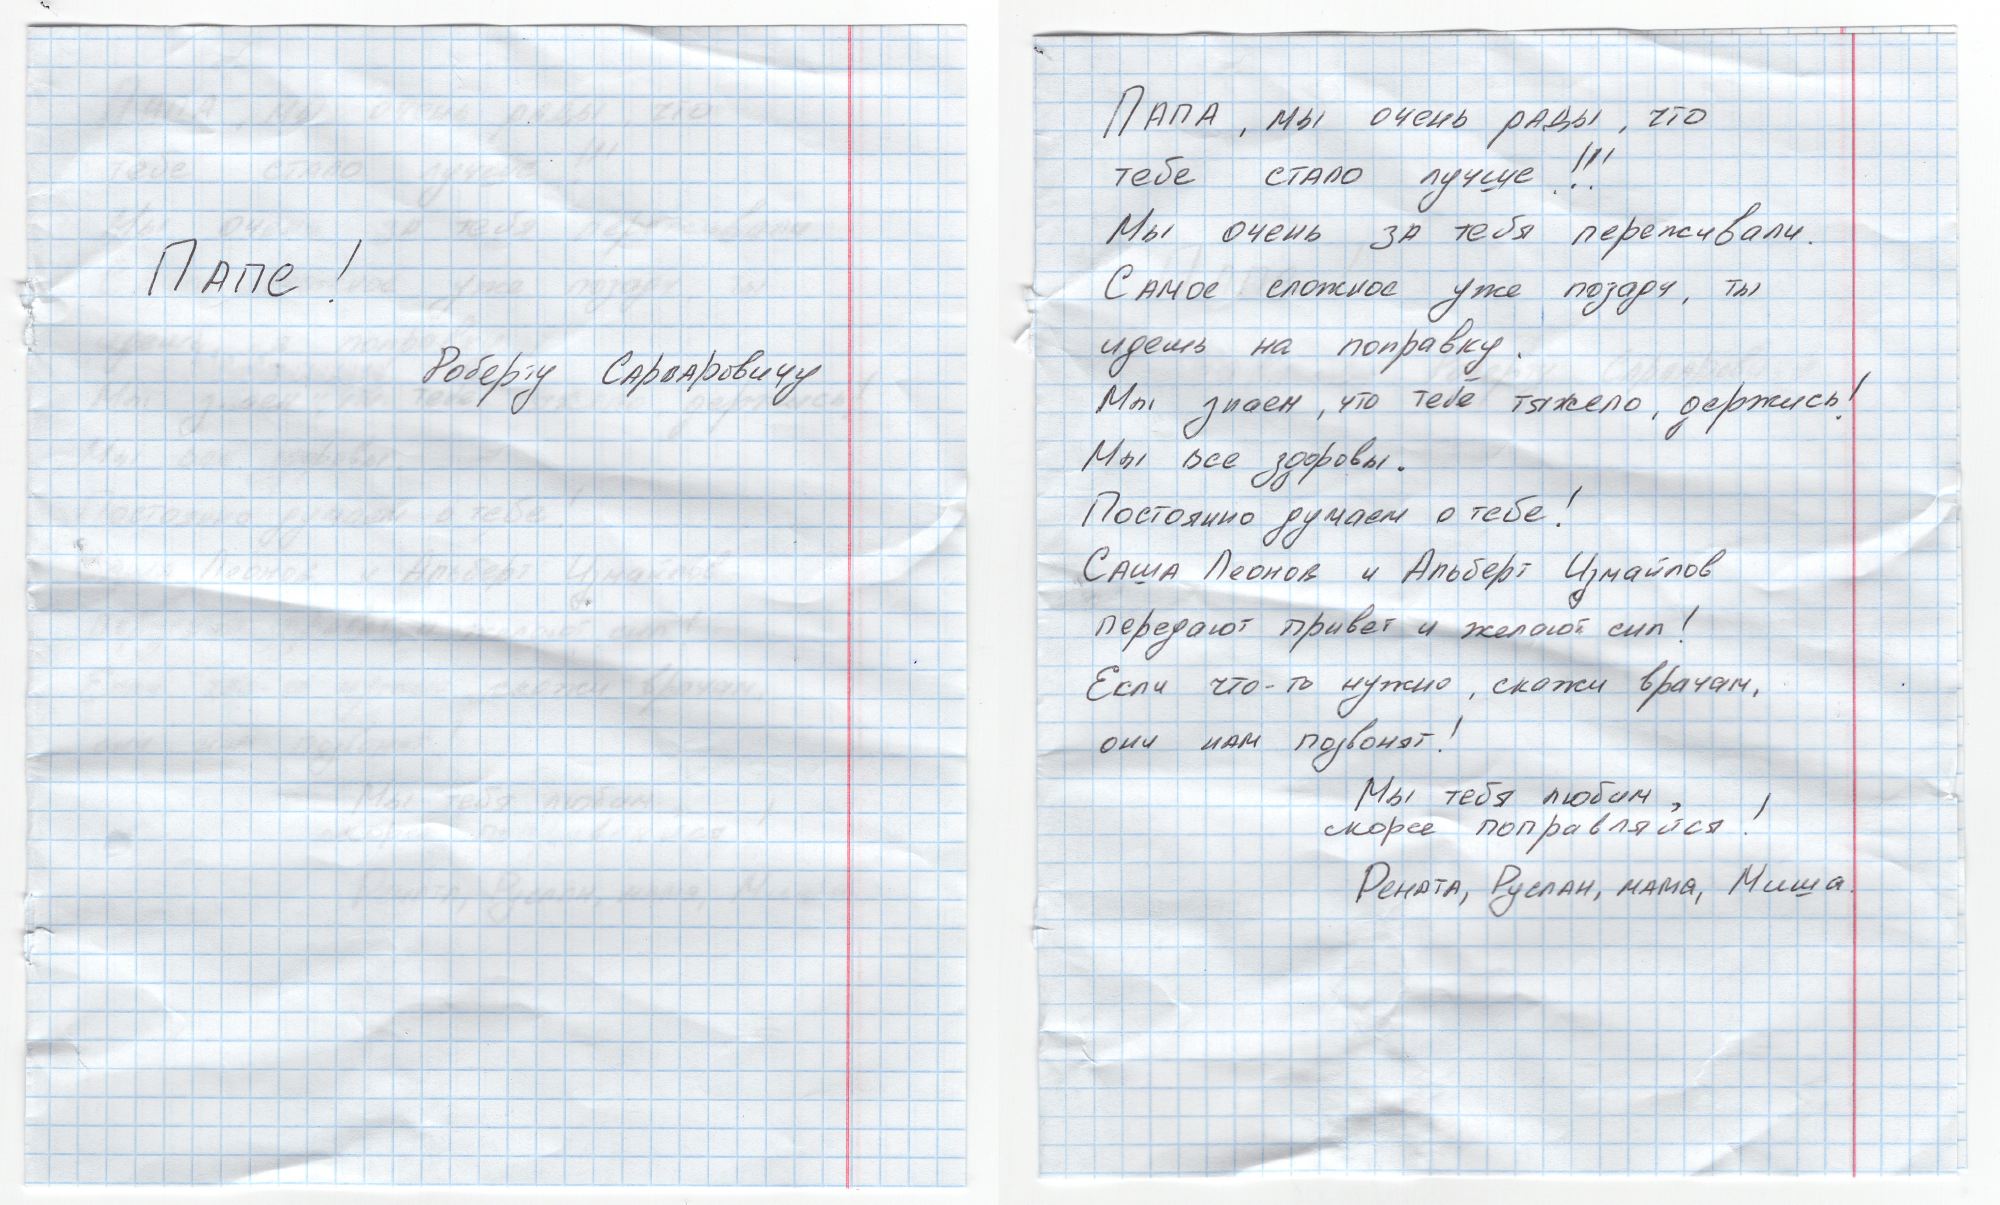 Папе!
Роберту Сарваровичу
Папа, мы очень рады, что
тебе стало лучше!!!
Мы очень за тебя переживали.
Самое сложное уже позади, ты
идешь на поправку.
Мы знаем, что тебе тяжело, держись!
Мы все здоровы.
Постоянно думаем о тебе!
Саша Леонов и Альберт Измайлов
передают привет и желают сил!
Если что-то нужно, скажи врачам,
они нам позвонят!
Мы тебя любим,
скорее поправляйся!
Рената, Руслан, мама, Миша.